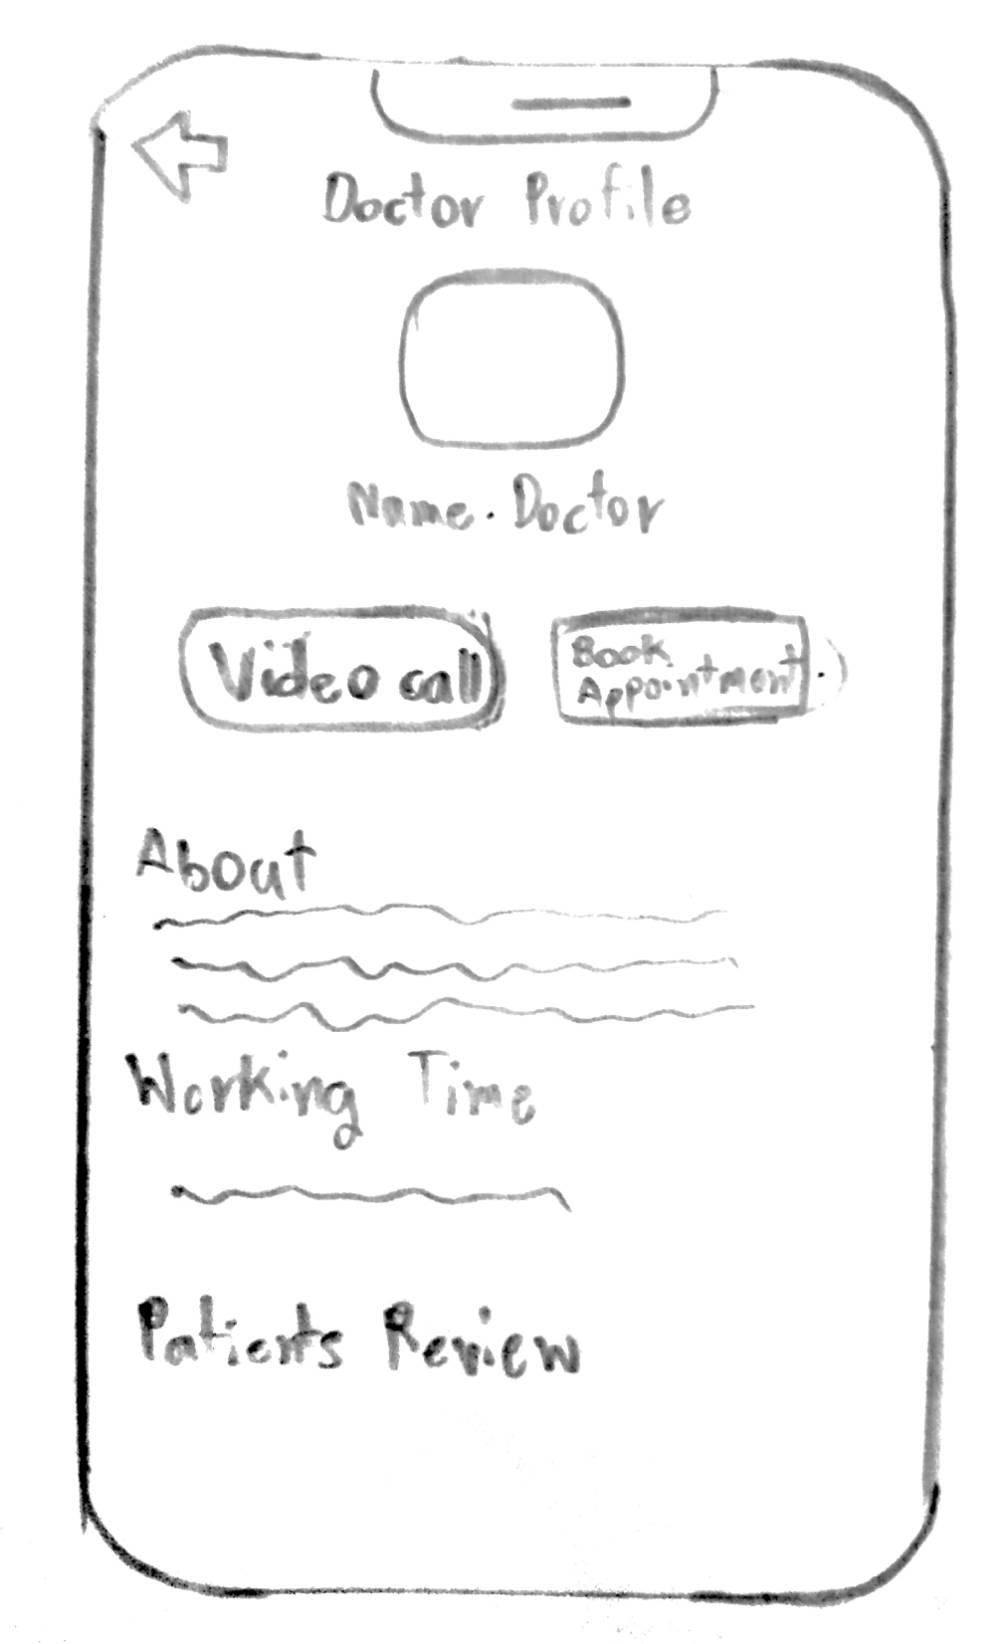 Doctor Profile
Name. Doctor
Video call
Book
Appointment.
About
Working Time
Patients Review